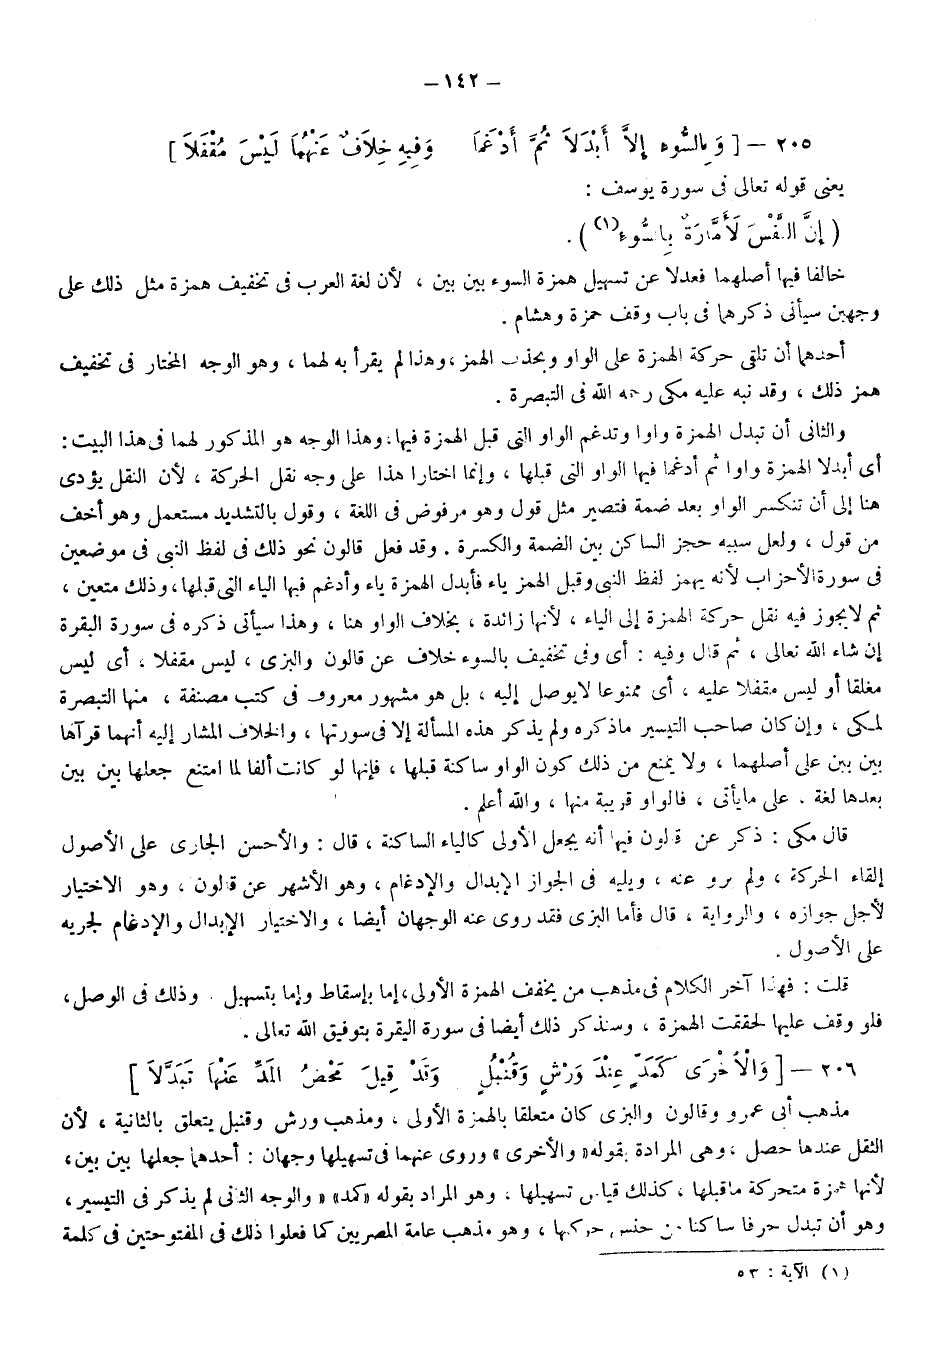 – ١٤٢ –
٢٠٥ – [ وَبِالسُّوءِ إِلاَّ أَبْدَلاَ ثُمَّ أَدْغَمَا وَفِيهِ خِلاَفٌ عَنْهُمَا لَيْسَ مُقْفَلاَ ]
يعنى قوله تعالى فى سورة يوسف :
( إِنَّ النَّفْسَ لَأَمَّارَةٌ بِالسُّوءِ(١) ) .
خالفا فيها أصلهما فعدلا عن تسهيل همزة السوء بين بين ، لأن لغة العرب فى تخفيف همزة مثل ذلك على
وجهين سيأتى ذكرهما فى باب وقف حمزة وهشام .
أحدهما أن تلقى حركة الهمزة على الواو وبحذف الهمز ، وهذا لم يقرأ به لهما ، وهو الوجه المختار فى تخفيف
همز ذلك ، وقد نبه عليه مكى رحمه الله فى التبصرة .
والثانى أن تبدل الهمزة واوا وتدغم الواو التى قبل الهمزة فيها، وهذا الوجه هو المذكور لهما فى هذا البيت :
أى أبدلا الهمزة واوا ثم أدغما فيها الواو التى قبلها ، وإنما اختارا هذا على وجه نقل الحركة ، لأن النقل يؤدى
هنا إلى أن تنكسر الواو بعد ضمة فتصير مثل قول وهو مرفوض فى اللغة ، وقول بالتشديد مستعمل وهو أخف
من قول ، ولعل سببه حجز الساكن بين الضمة والكسرة . وقد فعل قالون نحو ذلك فى لفظ النبى فى موضعين
فى سورة الأحزاب لأنه يهمز لفظ النبى وقبل الهمز ياء فأبدل الهمزة ياء وأدغم فيها الياء التى قبلها، وذلك متعين ،
ثم لا يجوز فيه نقل حركة الهمزة إلى الياء ، لأنها زائدة ، بخلاف الواو هنا ، وهذا سيأتى ذكره فى سورة البقرة
إن شاء الله تعالى ، ثم قال وفيه : أى وفى تخفيف بالسوء خلاف عن قالون والبزى ، ليس مقفلا ، أى ليس
مغلقا أو ليس مقفلا عليه ، أى ممنوعا لا يوصل إليه ، بل هو مشهور معروف فى كتب مصنفة ، منها التبصرة
لمكى ، وإن كان صاحب التيسير ماذكره ولم يذكر هذه المسألة إلا فى سورتها ، والخلاف المشار إليه أنهما قرآها
بين بين على أصلهما ، ولا يمنع من ذلك كون الواو ساكنة قبلها ، فإنها لو كانت ألفا لما امتنع جعلها بين بين
بعدها لغة . على مايأتى ، فالواو قريبة منها ، والله أعلم .
قال مكى : ذكر عن قالون فيها أنه يجعل الأولى كالياء الساكنة ، قال : والأحسن الجارى على الأصول
إلقاء الحركة ، ولم يرو عنه ، ويليه فى الجواز الإبدال والإدغام ، وهو الأشهر عن قالون ، وهو الاختيار
لأجل جوازه ، والرواية ، قال فأما البزى فقد روى عنه الوجهان أيضا ، والاختيار الإبدال والإدغام لجريه
على الأصول .
قلت : فهذا آخر الكلام فى مذهب من يخفف الهمزة الأولى، إما بإسقاط وإما بتسهيل . وذلك فى الوصل ،
فلو وقف عليها لحققت الهمزة ، وسنذكر ذلك أيضا فى سورة البقرة بتوفيق الله تعالى .
٢٠٦ – [ وَالْأُخْرَى كَمَدٍّ عِنْدَ وَرْشٍ وَقُنْبُلٍ وَقَدْ قِيلَ مَحْضُ المَدِّ عَنْهَا تَبَدَّلاَ ]
مذهب أبى عمرو وقالون والبزى كان متعلقا بالهمزة الأولى ، ومذهب ورش وقنبل يتعلق بالثانية ، لأن
الثقل عندها حصل ، وهى المرادة بقوله « والأخرى » وروى عنهما فى تسهيلها وجهان : أحدهما جعلها بين بين ،
لأنها همزة متحركة ماقبلها ، كذلك قياس تسهيلها ، وهو المراد بقوله « كمد » والوجه الثانى لم يذكر فى التيسير ،
وهو أن تبدل حرفا ساكنا من جنس حركتها ، وهو مذهب عامة المصريين كما فعلوا ذلك فى المفتوحتين فى كلمة
(١) الآية : ٥٣